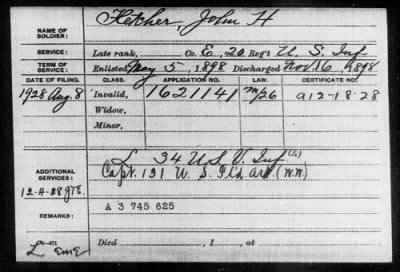 NAME OF SOLDIER: Fletcher, John H
SERVICE: Late rank, Co. E, 20 Reg't U. S. Inf
TERM OF SERVICE: Enlisted May 5, 1898 Discharged Nov. 16, 1898
DATE OF FILING. CLASS. APPLICATION NO. LAW. CERTIFICATE NO.
1928 Aug. 8 Invalid, 1621141 m/26 a12-18-28
Widow,
Minor,
ADDITIONAL SERVICES: L 34 U S V. Inf (S)
Capt. 121 U. S. Fld. art. (W.W.)
12-4-28
REMARKS: A 3 745 625
Died , 1 , at